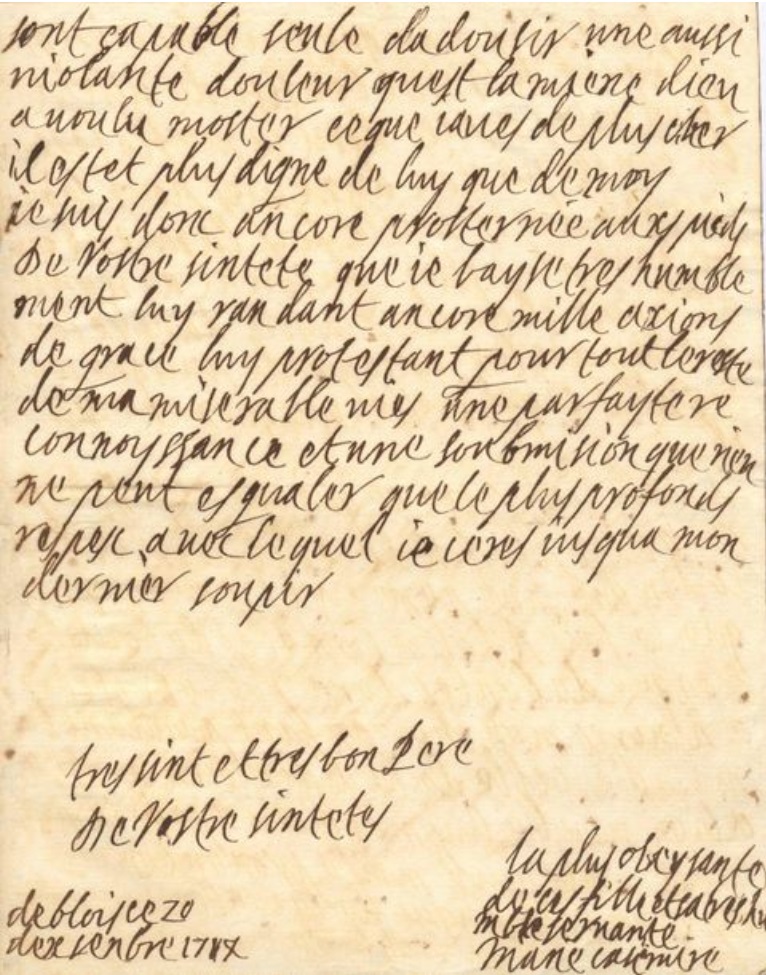 sont capable seule dadousir une aussi
violante douleur quest la miene dieu
a voulu moster ceque iaves de plus cher
il estet plus digne de luy que de moy
ie suis donc ancore prosternée aux pieds
de Vostre sintete que ie bayse tres humble
ment luy randant ancore mille axions
de grace luy protestant pour tout le reste
de ma miserable vies une parfayte re
connoyssance et une soubmision que rien
ne peut esgualer que le plus profonds
respex avec le quel ie ieres iusqua mon
dernier soupir
tres sint et tres bon Pere
de Vostre sintetes
la plus obeysante
de ces fille et sa tres hu
mble servante
Marie casimire
de blois ce 20
dexsenbre